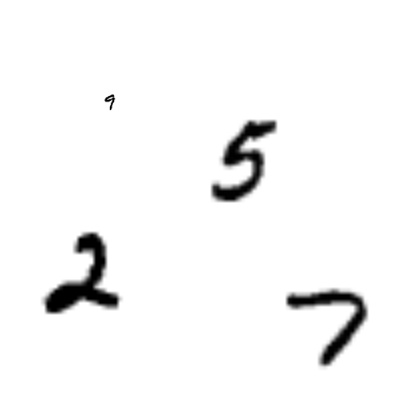 9
5
2
7